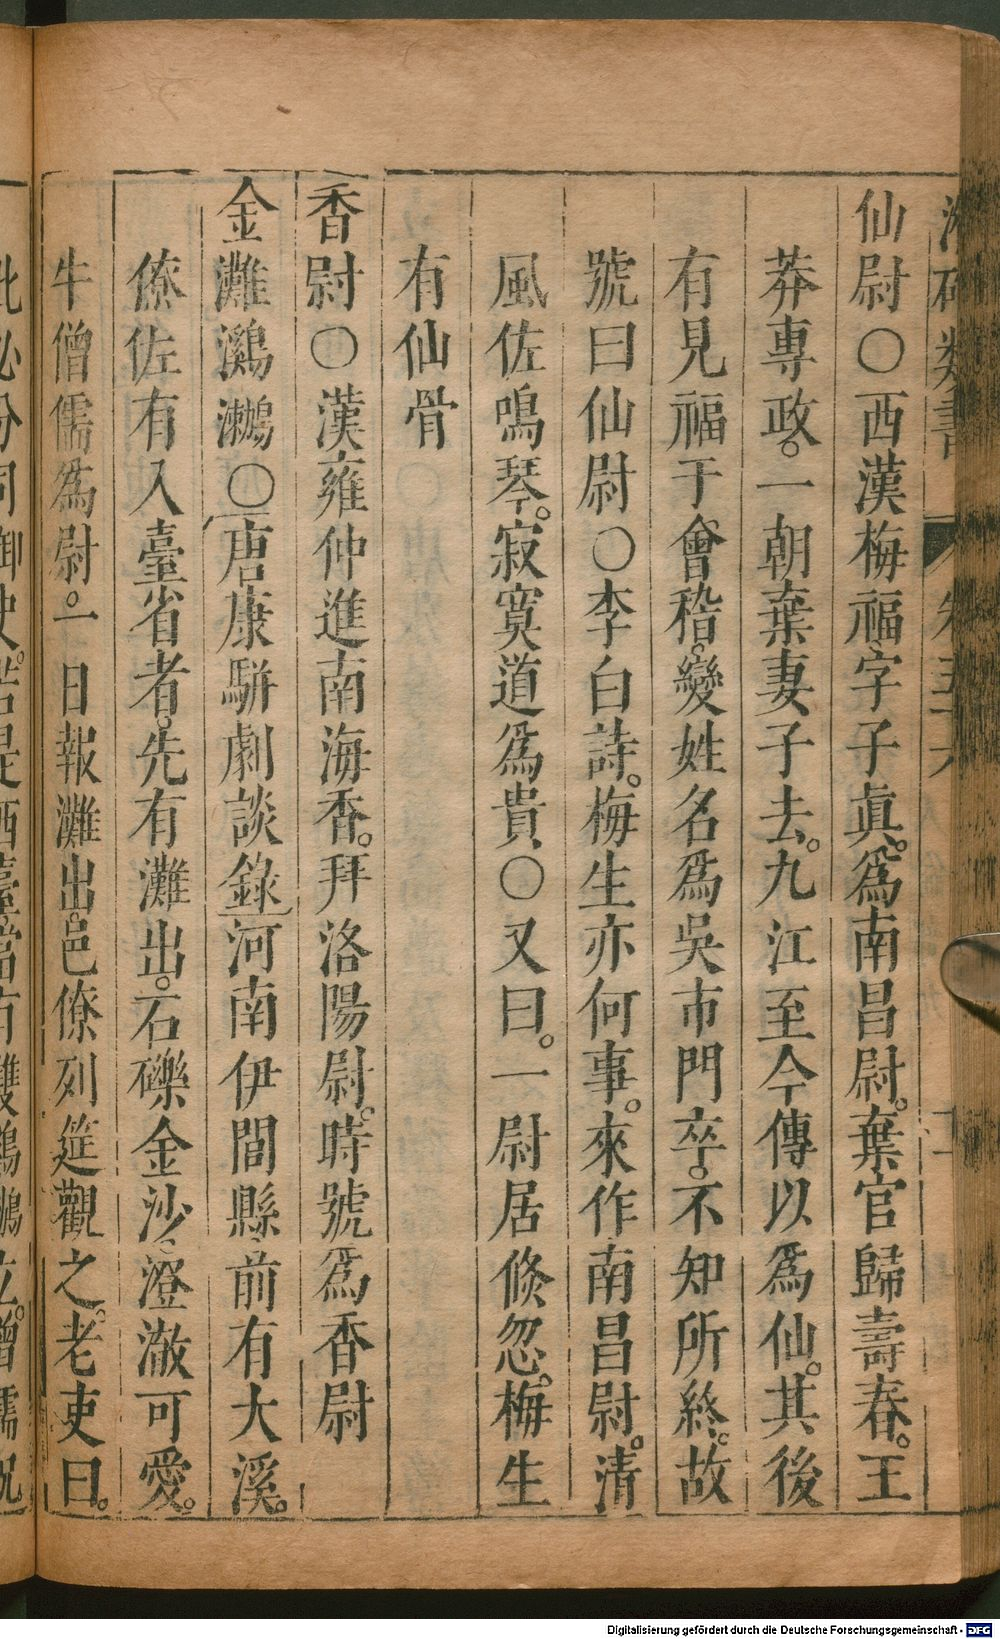 仙尉○西漢梅福字子眞。爲南昌尉。棄官歸壽春。王
莽專政。一朝棄妻子去。九江至今傳以爲仙。其後
有見福于會稽。變姓名爲吳市門卒。不知所終。故
號曰仙尉○李白詩。梅生亦何事。來作南昌尉。清
風佐鳴琴。寂寞道爲貴○又曰。一尉居倐忽。梅生
有仙骨
香尉○漢雍仲進南海香。拜洛陽尉。時號爲香尉
金灘鸂鷘○唐康駢劇談錄河南伊闊縣前有大溪。
僚佐有入臺省者。先有灘出。石礫金沙。澄澈可愛。
牛僧儒爲尉。一日報灘出。邑僚列筵觀之。老吏曰。
此必分司御史。若是西臺當有雙鸂鷘立。僧儒況
Digitalisierung gefördert durch die Deutsche Forschungsgemeinschaft - DFG